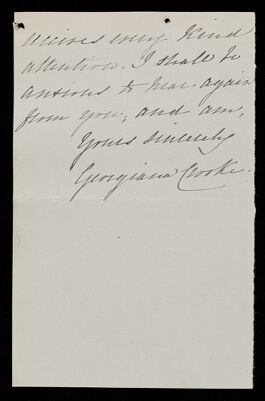 receives every kind
attention. I shall be
anxious to hear again
from you, and am,
Yours sincerely
Georgiana Crooke.